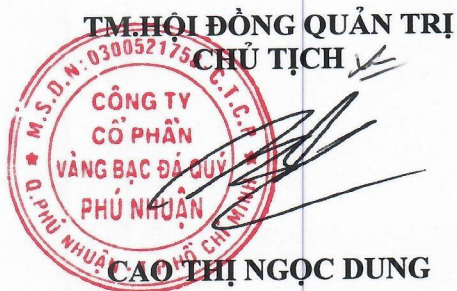 TM.HỘI ĐỒNG QUẢN TRỊ
CHỦ TỊCH
M.S.D.N: 0300521758 C.T.C.P
CÔNG TY
CỔ PHẦN
VÀNG BẠC ĐÁ QUÝ
PHÚ NHUẬN
Q.PHÚ NHUẬN HỒ CHÍ MINH
CAO THỊ NGỌC DUNG